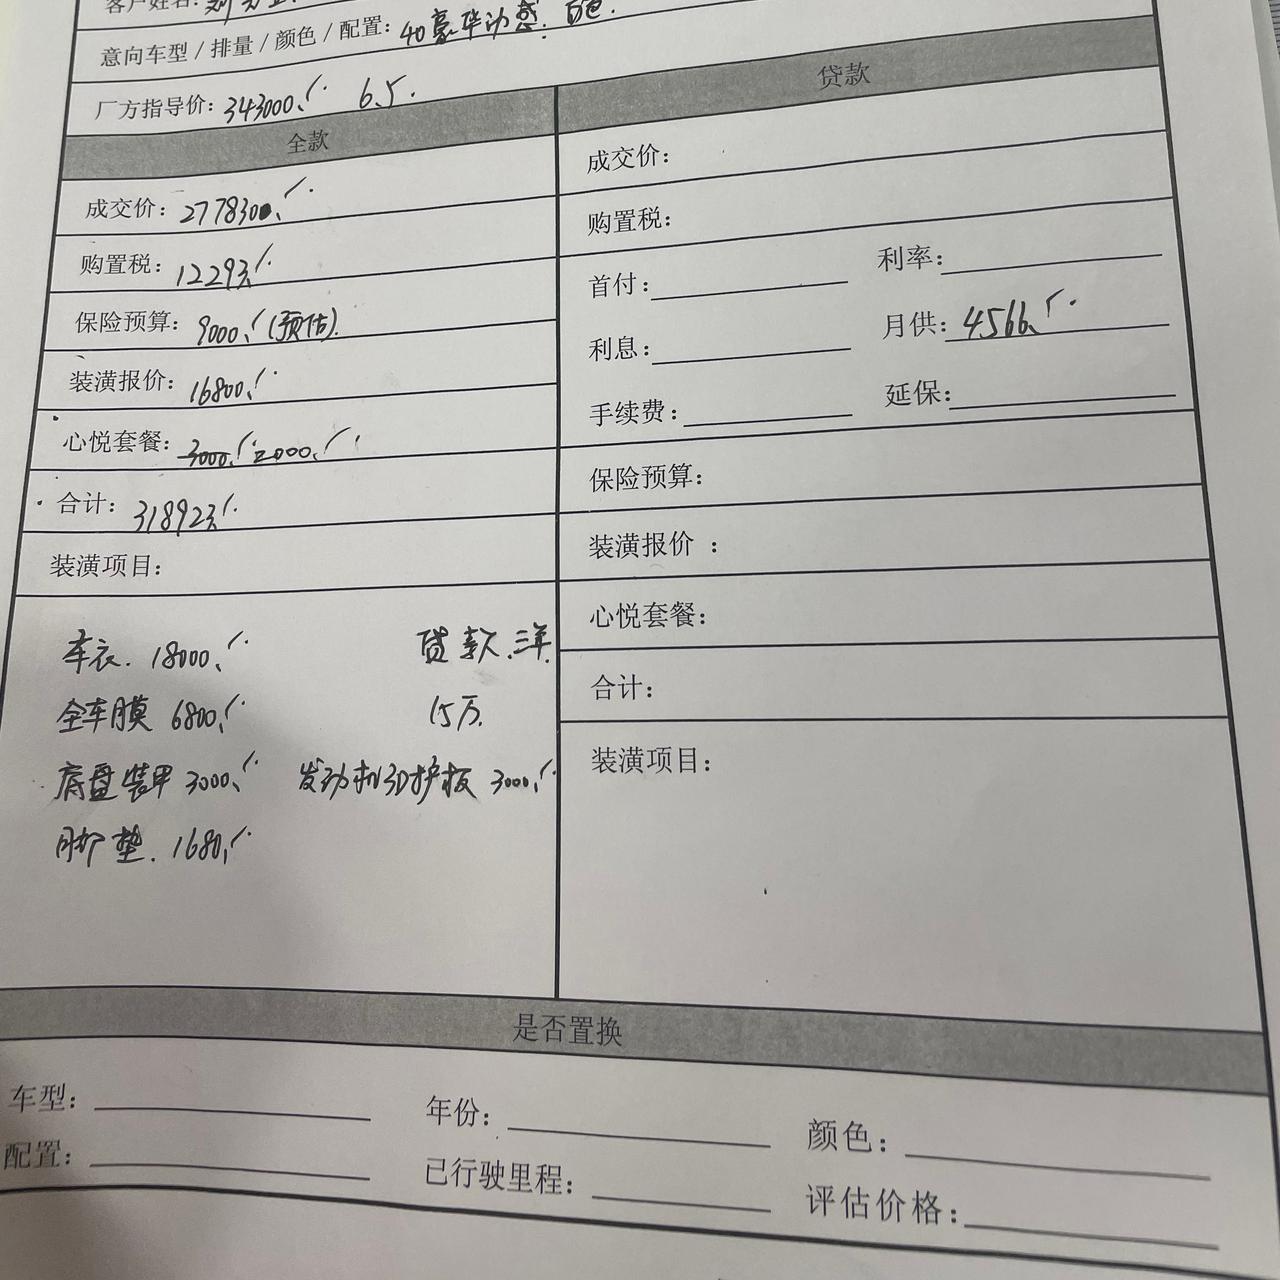 客户姓名:
意向车型 / 排量 / 颜色 / 配置: 40豪华动感. 白色.
厂方指导价: 343000 6.5.
全款
成交价: 277830
购置税: 12293
保险预算: 9000 (预估).
装潢报价: 16800
心悦套餐: 3000 2000
合计: 318923
装潢项目:
车衣. 18000 贷款.三年.
全车膜 6800 15万.
底盘装甲 3000 发动机3D护板 3000
脚垫. 1680
贷款
成交价:
购置税:
首付: 利率:
利息: 月供: 4566
手续费: 延保:
保险预算:
装潢报价 :
心悦套餐:
合计:
装潢项目:
是否置换
车型: 年份: 颜色:
配置: 已行驶里程: 评估价格: